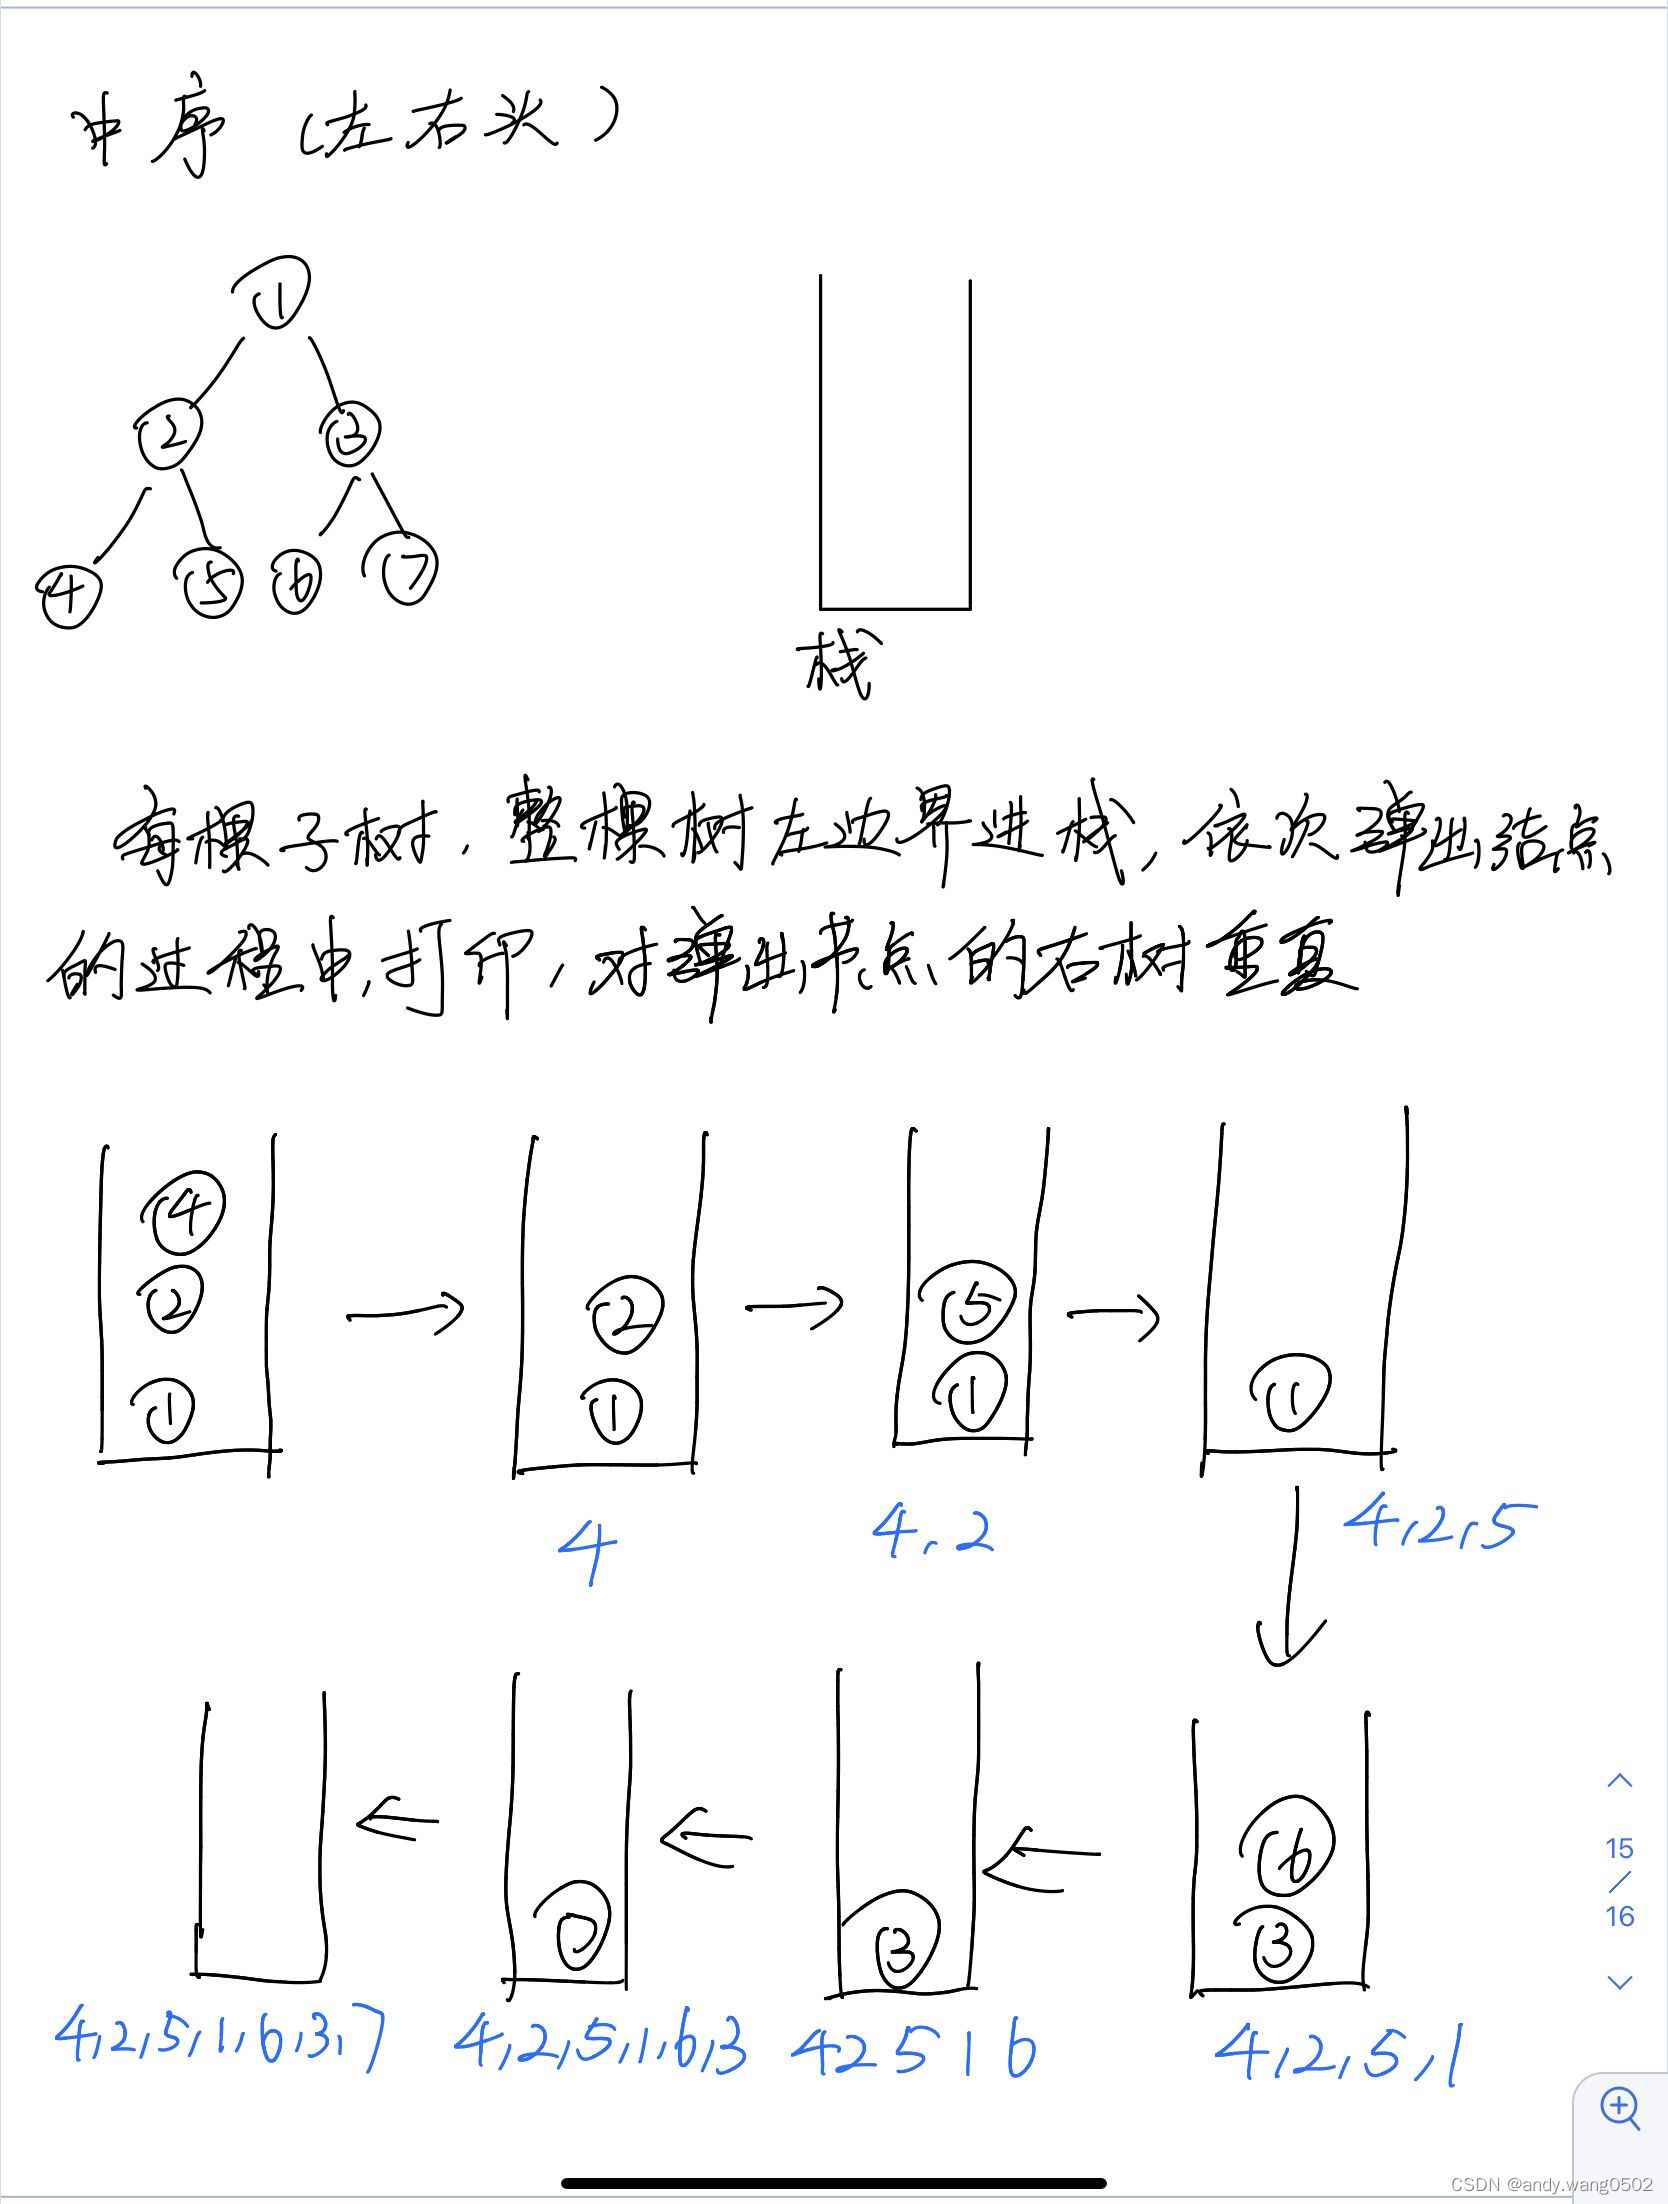 中序（左右头）
1
2 3
4 5 6 7
栈
每棵子树，整棵树左边界进栈，依次弹出结点
的过程中，打印，对弹出节点的右树重复
4
2 2 5
1 1 1 1
4 4,2 4,2,5
6
7 3 3
4,2,5,1,6,3,7 4,2,5,1,6,3 42516 4,2,5,1
15
/
16
CSDN @andy.wang0502